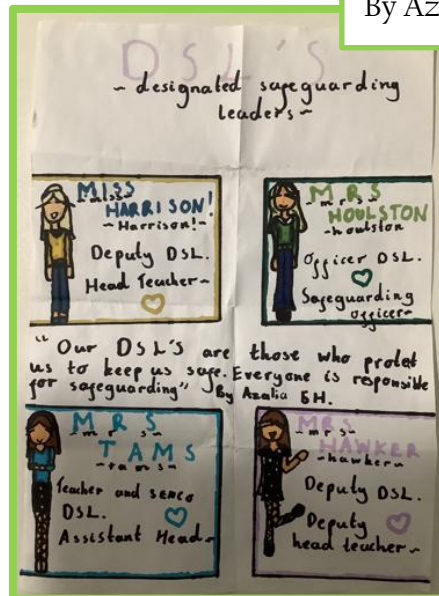 By Az
DSL'S
~designated safeguarding
leaders~
MISS
~miss~
HARRISON!
~Harrison!~
Deputy DSL.
Head Teacher~
MRS
~mrs~
HOULSTON
~houlston
Officer DSL.
Safeguarding
officer~
"Our DSL'S are those who protet
us to keep us safe. Everyone is reponsible
for safeguarding" By Azalia 5H.
MRS
~mrs~
TAMS
~tams~
Teacher and senco
DSL.
Assistant Head~
MRS
~mrs~
HAWKER
~hawker~
Deputy DSL.
Deputy
head teacher~